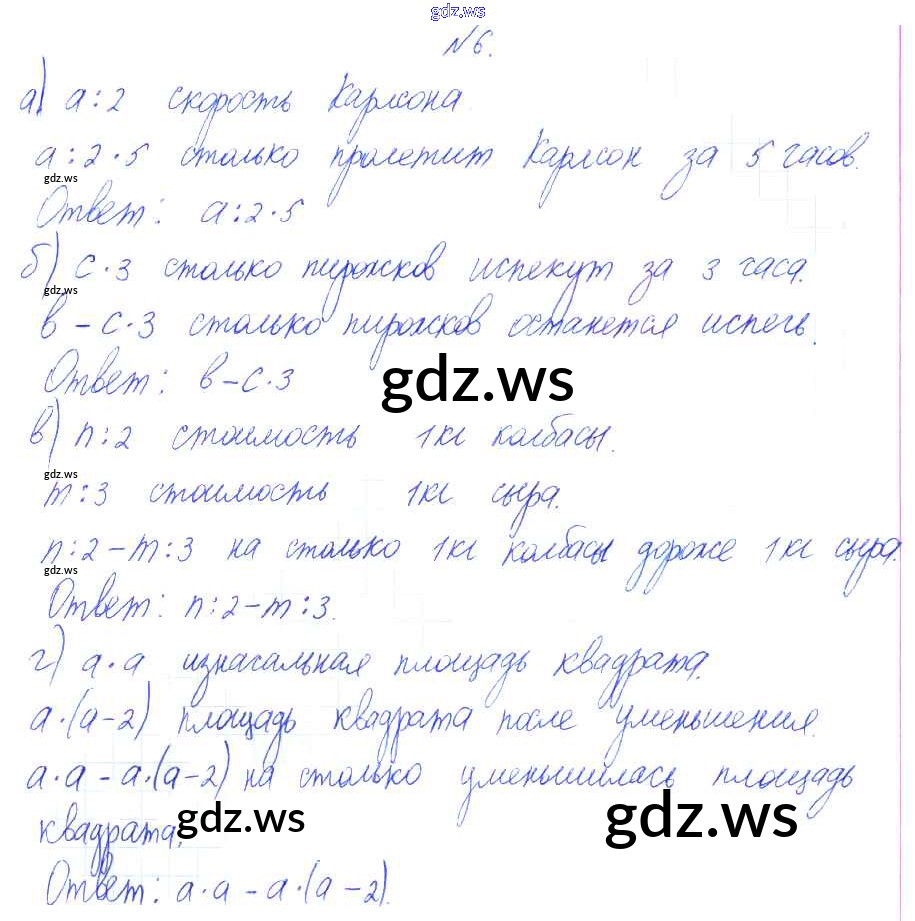 gdz.ws
№6.
а) а:2 скорость Карлсона
а:2·5 столько пролетит Карлсон за 5 часов.
gdz.ws
Ответ: а:2·5
б) с·3 столько пирожков испекут за 3 часа.
gdz.ws
в-с·3 столько пирожков останется испечь.
Ответ: в-с·3
gdz.ws
в) n:2 стоимость 1кг колбасы.
gdz.ws
m:3 стоимость 1кг сыра.
n:2-m:3 на столько 1кг колбасы дороже 1кг сыра.
gdz.ws
Ответ: n:2-m:3.
г) а·а изначальная площадь квадрата.
а·(а-2) площадь квадрата после уменьшения.
а·а-а·(а-2) на столько уменьшилась площадь
квадрата.
gdz.ws
gdz.ws
Ответ: а·а-а·(а-2).